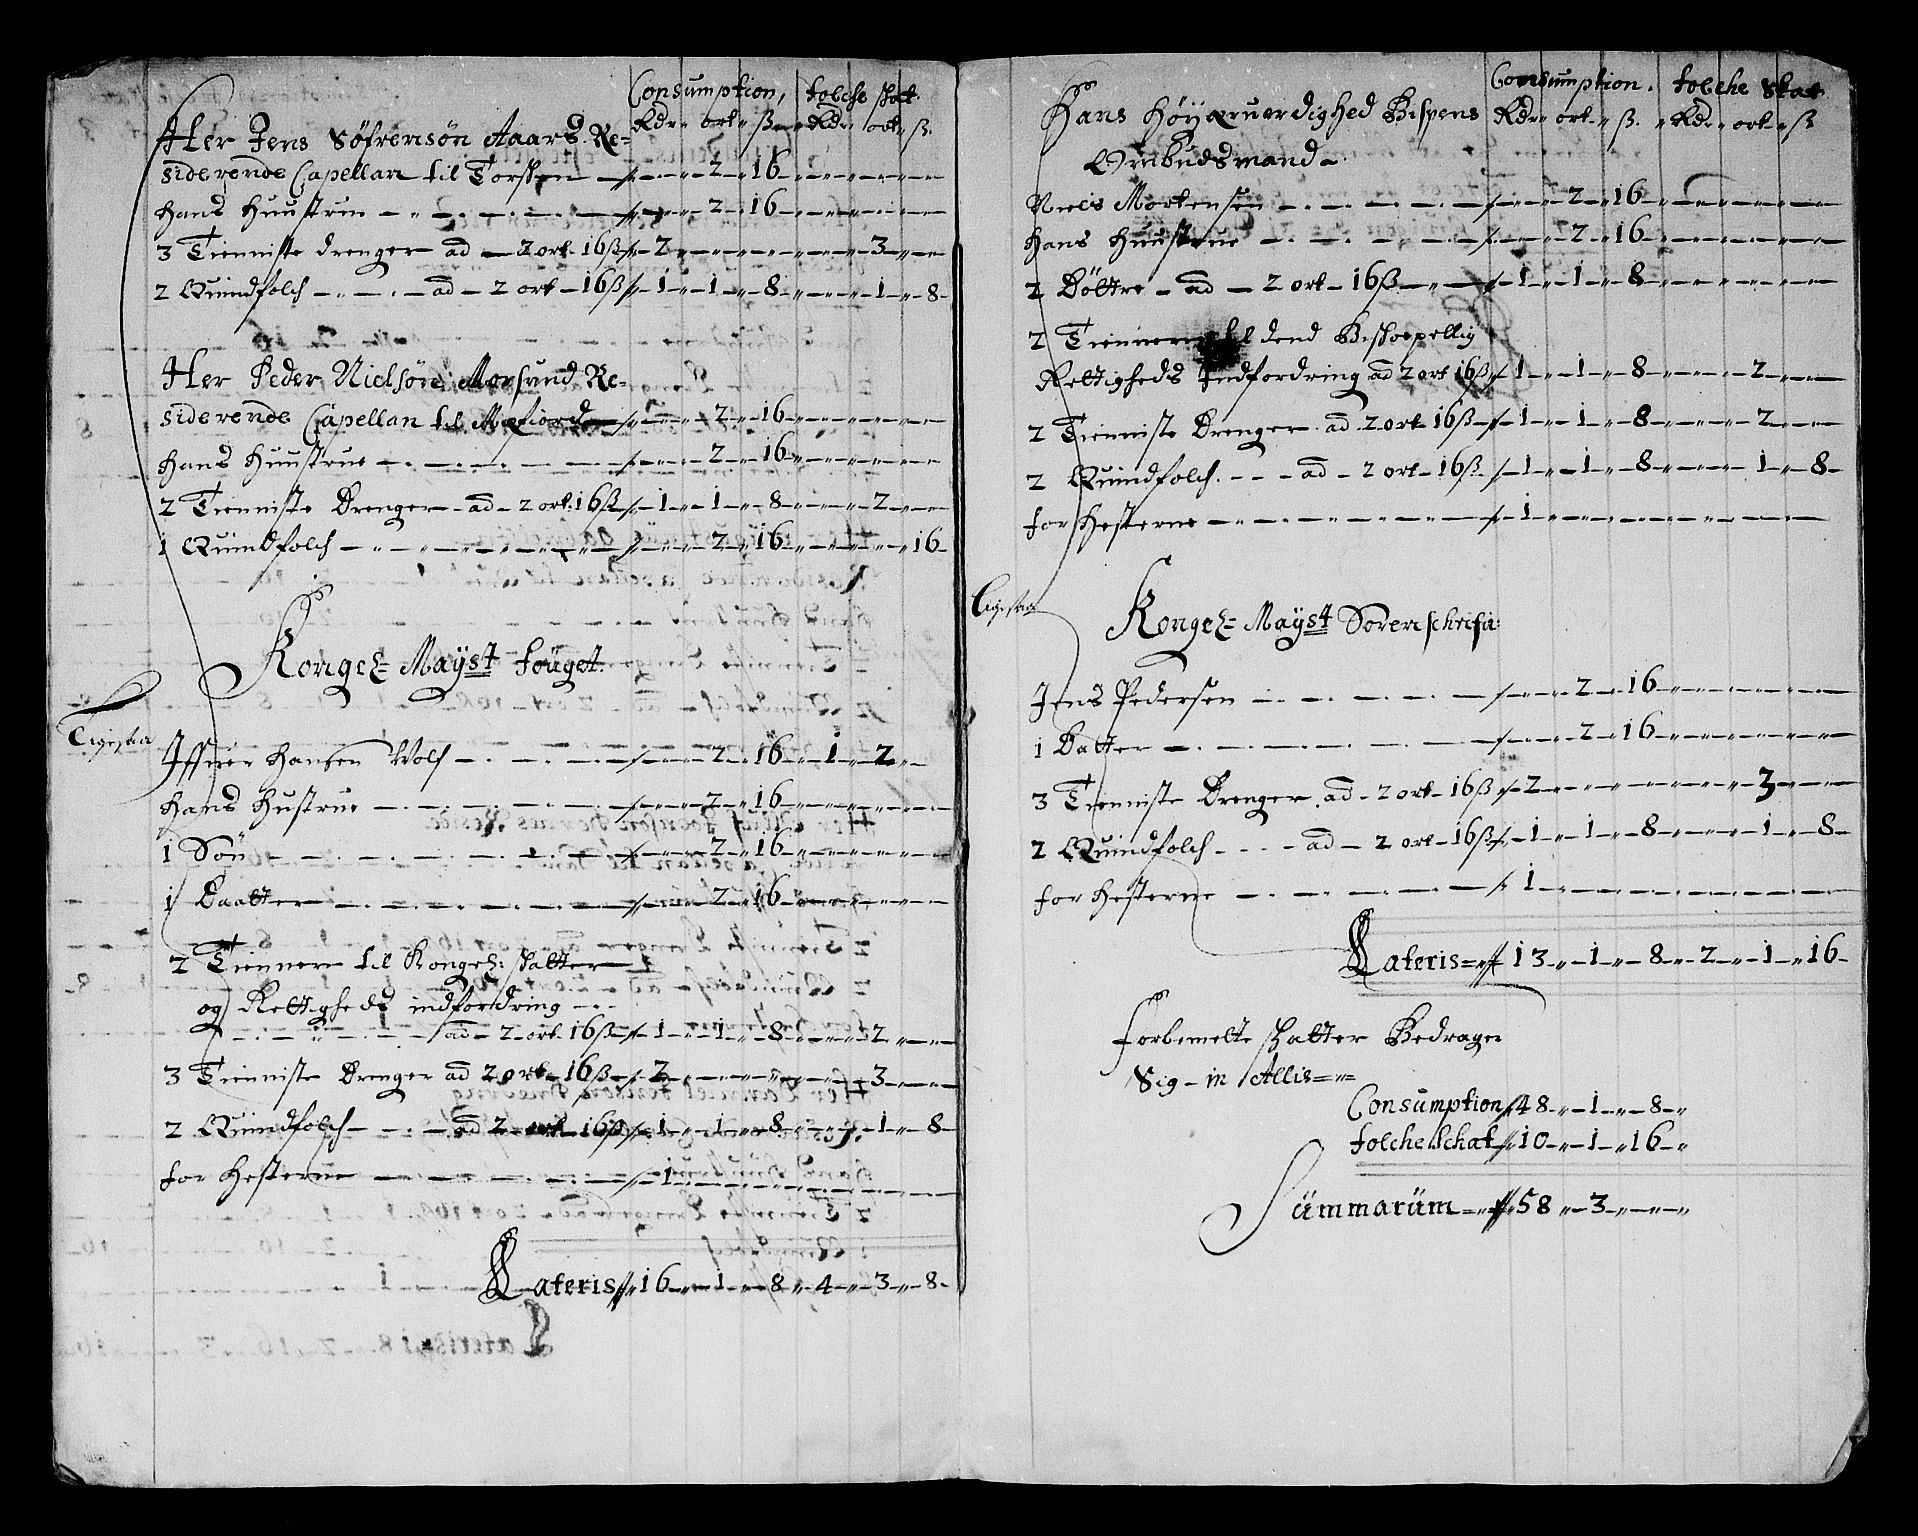 Consumption, folche skat.
Rdr ort ß Rdr ort ß.
Her Jens Söfrensön Aaars. Re-
siderende Capellan til Torsken 2 16
Hans Huustrue 2 16
3 Tienniste drenger ad 2 ort 16 ß 2 3
2 Quindfolch ad 2 ort 16 ß 1 1 8 1 8
Her Peder Nielsön Morsund Re-
siderende Capellan til Mefiord 2 16
Hans Huustrue 2 16
2 Tienniste Drenger ad 2 ort. 16 ß 1 1 8 2
1 Quindfolch 2 16 16
Kongel Mayst fouget.
Hans Hustrue 2 16
1 Sön 2 16
1 Daatter 2 16
2 Tiennere til Kongel: skatter
og Rettigheds indfordring
ad 2 ort 16 ß 1 1 8 2
3 Tienniste Drenger ad 2 ort 16 ß 2 3
2 Quindfolch ad 2 ort 16 ß 1 1 8 1 8
for Hesterne 1
Lateris 16 1 8 4 3 8
Consumption. folche Skat
Rdr ort ß. Rdr. ort ß
Hans Höyaruerdighed Bispens
Ombudsmand
Niels Mortensen 2 16
Hans Huustrue 2 16
2 Döttre ad 2 ort 16 ß 1 1 8
2 Tiennere til dend Biskoepellig
Rettigheds Indfordring ad 2 ort 16 ß 1 1 8 2
2 Tienniste Drenger ad 2 ort 16 ß 1 1 8 2
2 Quindfolch. ad 2 ort 16 ß 1 1 8 1 8
for Hesterne 1
Kongel Mayst Sorenschrifu:
Jens Pedersen 2 16
1 Datter 2 16
3 Tienniste Drenger ad 2 ort 16 ß 2 3
2 Quindfolch ad 2 ort 16 ß 1 1 8 1 8
for Hesterne 1
Lateris 13 1 8 2 1 16
Forbemelte skatter Bedrager
Sig in Allis
Consumption 48 1 8
folcheschat 10 1 16
Summarum 58 3